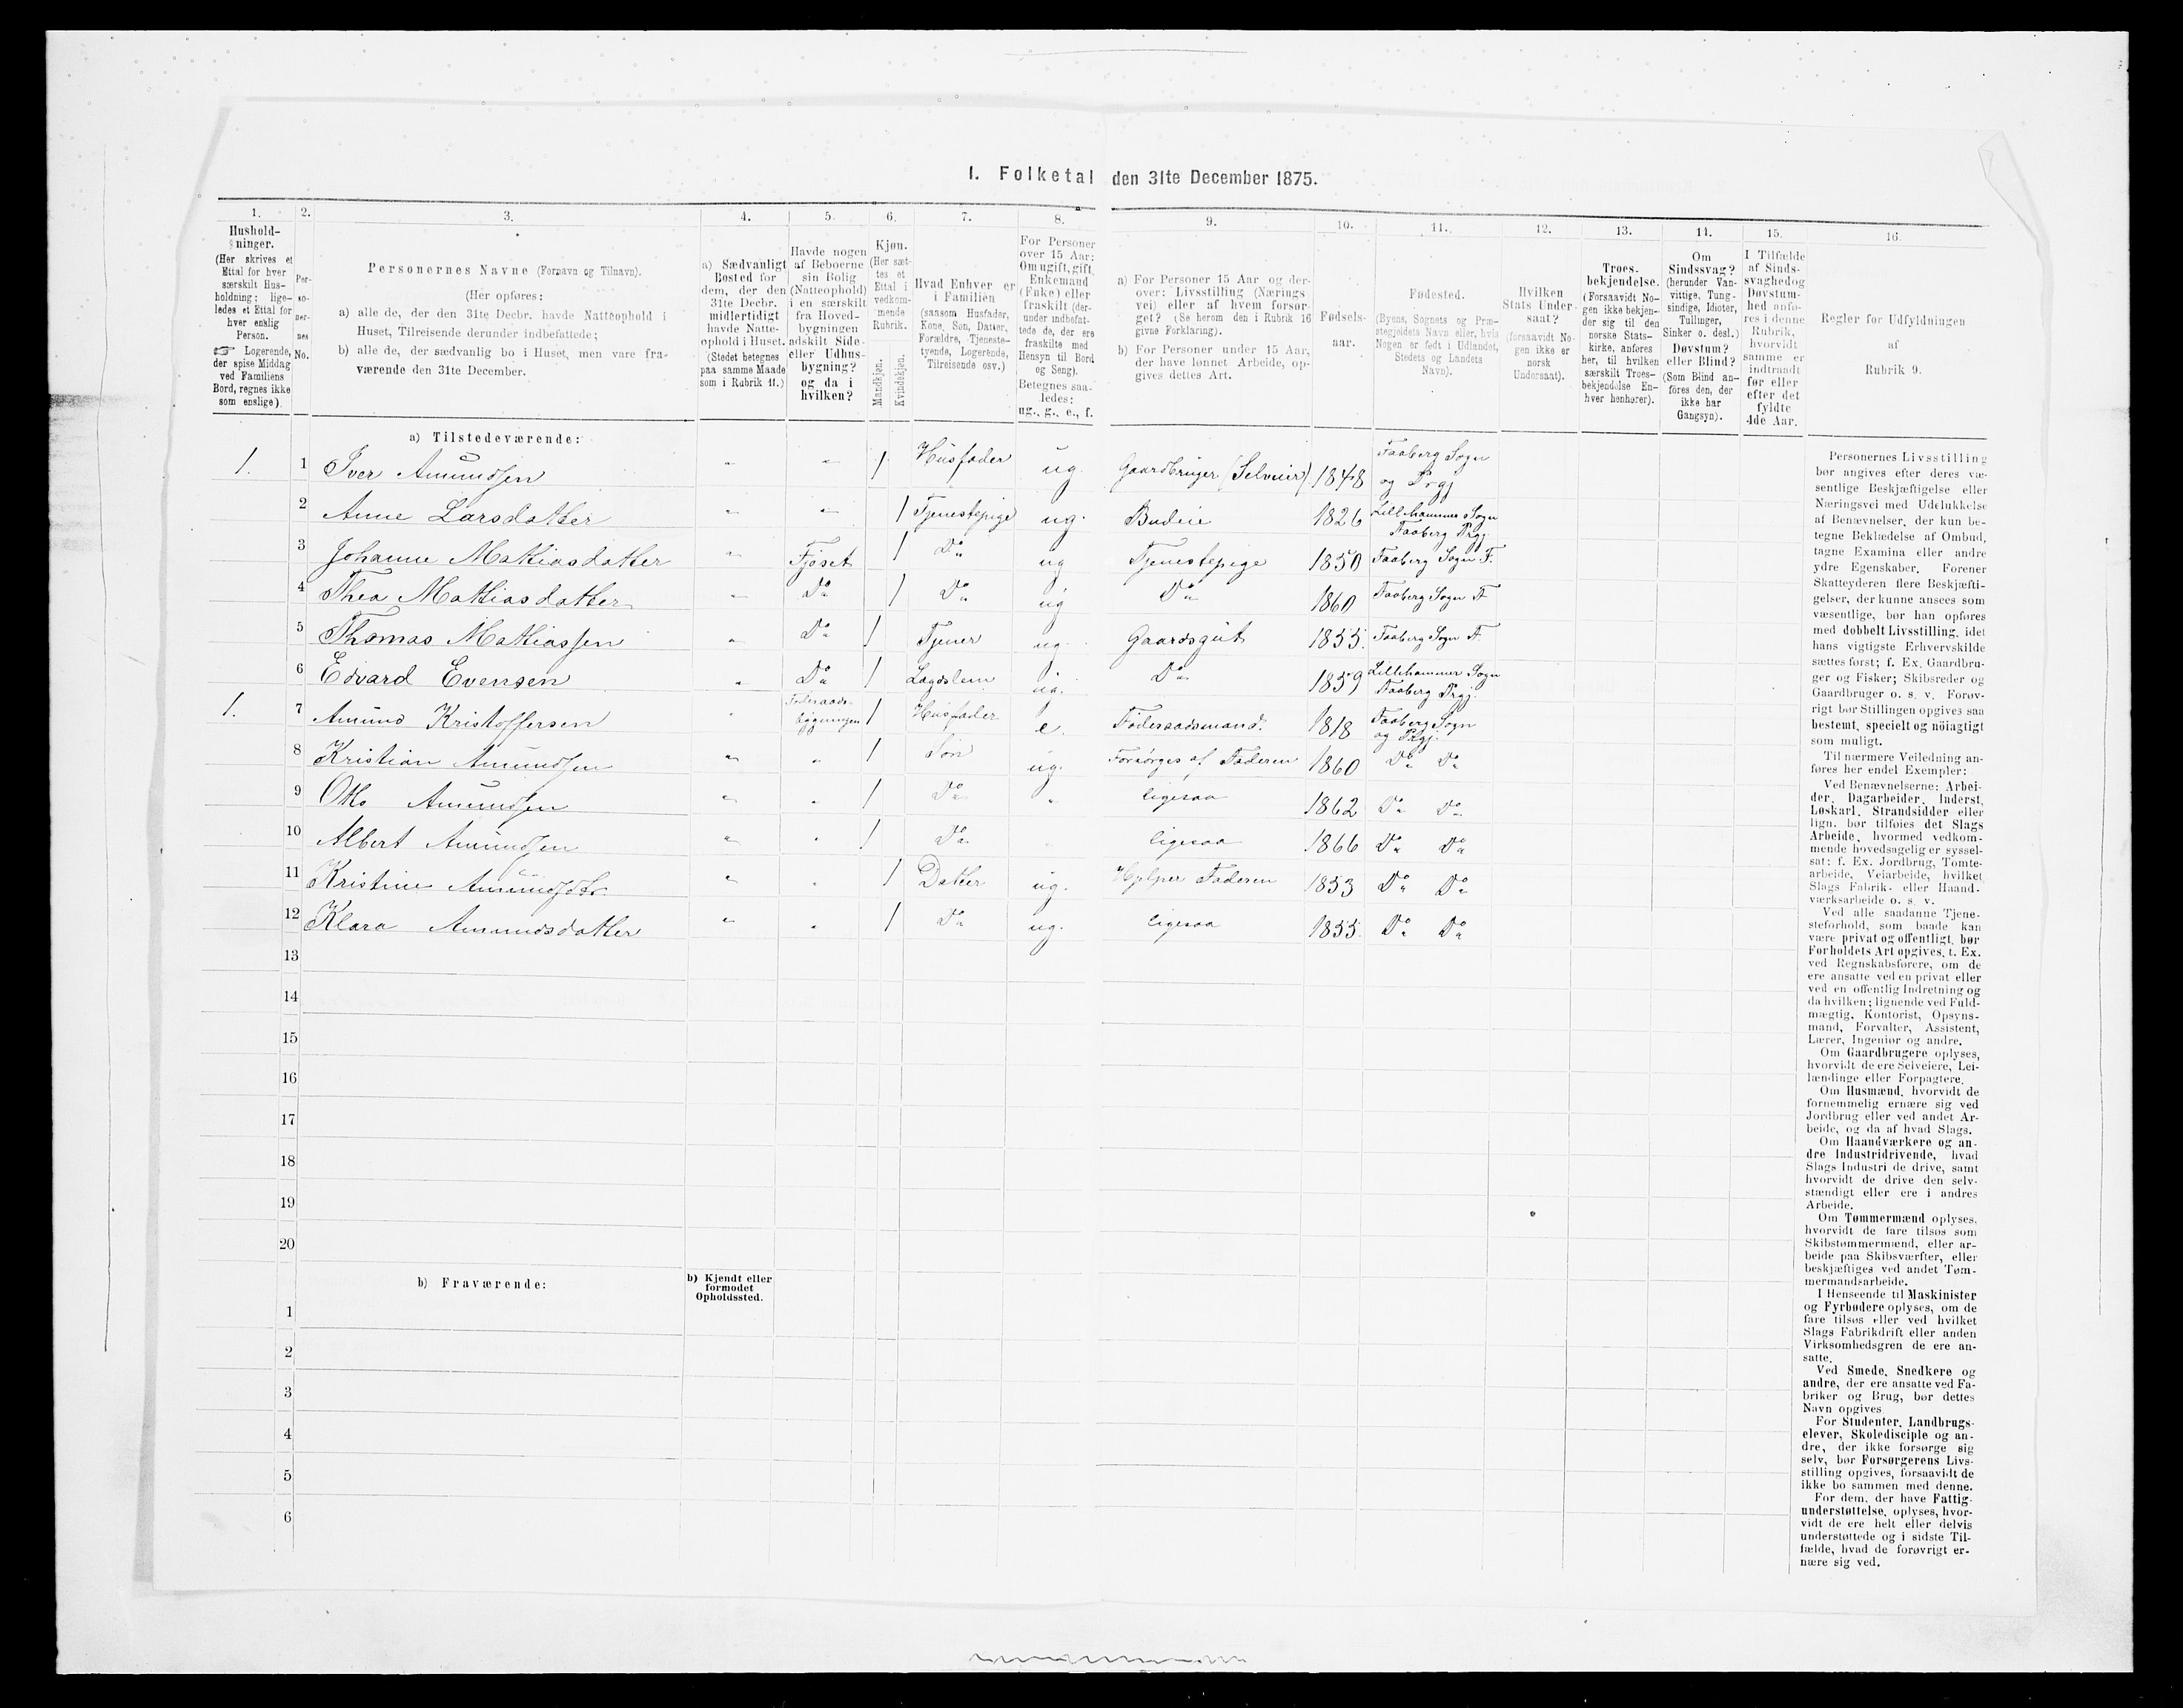 I. Folketal den 31te December 1875.
1. 2. 3. 4. 5. 6. 7. 8. 9. 10. 11. 12. 13. 14. 15. 16.
Hushold-
ninger.
(Her skrives et
Ettal for hver
særskilt Hus-
holdning; lige-
ledes et Ettal for
hver enslig
Person.
☞ Logerende,
der spise Middag
ved Familiens
Bord, regnes ikke
som enslige).
Per-
so-
ner-
nes
No.
Personernes Navne (Fornavn og Tilnavn).
(Her opføres:
a) alle de, der den 31te Decbr. havde Natteophold i
Huset, Tilreisende derunder indbefattede;
b) alle de, der sædvanlig bo i Huset, men vare fra-
værende den 31te December.
a) Sædvanligt
Bosted for
dem, der den
31te Decbr.
midlertidigt
havde Natte-
ophold i Huset.
(Stedet betegnes
paa samme Maade
som i Rubrik 11.)
Havde nogen
af Beboerne
sin Bolig
(Natteophold)
i en særskilt
fra Hoved-
bygningen
adskilt Side-
eller Udhus-
bygning?
og da i
hvilken?
Kjøn.
(Her sæt-
tes et
Ettal i
vedkom-
mende
Rubrik.
Mandkjøn.
Kvindekjøn.
Hvad Enhver er
i Familien
(saasom Husfader,
Kone, Søn, Datter,
Forældre, Tjeneste-
tyende, Logerende,
Tilreisende osv.)
For Personer
over 15 Aar:
Om ugift, gift,
Enkemand
(Enke) eller
fraskilt (der-
under indbefat-
tede de, der ere
fraskilte med
Hensyn til Bord
og Seng).
Betegnes saa-
ledes:
ug., g., e., f.
a) For Personer 15 Aar og der-
over: Livsstilling (Nærings-
vei) eller af hvem forsør-
get? (Se herom den i Rubrik 16
givne Forklaring).
b) For Personer under 15 Aar,
der have lønnet Arbeide, op-
gives dettes Art.
Fødsels-
aar.
Fødested.
(Byens, Sognets og Præ-
stegjeldets Navn eller, hvis
Nogen er født i Udlandet,
Stedets og Landets
Navn).
Hvilken
Stats Under-
saat?
(forsaavidt No-
gen ikke er
norsk
Undersaat).
Troes-
bekjendelse.
(Forsaavidt No-
gen ikke bekjen-
der sig til den
norske Stats-
kirke, anføres
her, til hvilken
særskilt Troes-
bekjendelse En-
hver henhører).
Om
Sindssvag?
(herunder Van-
vittige, Tung-
sindige, Idioter,
Tullinger,
Sinker o. desl.)
Døvstum?
eller Blind?
(Som Blind an-
føres den, der
ikke har
Gangsyn).
I Tilfælde
af Sinds-
svaghed og
Døvstum-
hed anfø-
res i denne
Rubrik,
hvorvidt
samme er
indtraadt
før eller
efter det
fyldte
4de Aar.
Regler for Udfyldningen
af
Rubrik 9.
a) Tilstedeværende:
1. 1 Iver Amundsen " " 1 Husfader ug. Gaardbruger (Selveier) 1848 Faaberg Sogn og Prgj
2 Anne Larsdatter " " 1 Tjenestepige ug. Budeie 1826 Lillehammer Sogn Faaberg Prgj.
3 Johanne Mathiasdatter " Fjøset 1 Do ug Tjenestepige 1850 Faaberg Sogn F.
4 Thea Mathiasdatter " Do 1 Do ug Do 1860 Faaberg Sogn F
5 Thomas Mathiassen " Do 1 Tjener ug. Gaardsgut 1855. Faaberg Sogn F.
6 Edvard Evensen " Do 1 Lægdslem ug. Do 1859 Lillehammer Sogn Faaberg Prgj.
1. 7 Amund Kristoffersen " Føderaads-byggningen 1 Husfader e. Føderaadsmand. 1818 Faaberg Sogn og Prgj.
8 Kristian Amundsen " " 1 Søn ug. Forsørges af Faderen 1860 Do Do
9 Otto Amundsen " " 1 Do " ligesaa 1862 Do Do
10 Albert Amundsen " " 1 Do ligesaa 1866 Do Do
11 Kristine Amundsdtr " " 1 Datter ug. Hjelper Faderen 1853 Do Do
12 Klara Amundsdatter " " 1 Do ug. ligesaa 1855. Do Do
13
14
15
16
17
18
19
20
b) Fraværende:
b) Kjendt eller
formodet
Opholdssted.
1
2
3
4
5
6
Personernes Livsstilling
bør angives efter deres væ-
sentlige Beskjæftigelse eller
Næringsvei med Udelukkelse
af Benævnelser, der kun be-
tegne Beklædelse af Ombud,
tagne Examina eller andre
ydre Egenskaber. Forener
Skatteyderen flere Beskjæfti-
gelser, der kunne ansees som
væsentlige, bør han opføres
med dobbelt Livsstilling, idet
hans vigtigste Erhvervskilde
sættes først; f. Ex. Gaardbru-
ger og Fisker; Skibsreder og
Gaardbruger o. s. v. Forøv-
rigt bør Stillingen opgives saa
bestemt, specielt og nöiagtigt
som muligt.
Til nærmere Veiledning an-
føres her endel Exempler:
Ved Benævnelserne: Arbei-
der, Dagarbeider, Inderst,
Løskarl, Strandsidder eller
lign. bør tilføies det Slags
Arbeide, hvormed vedkom-
mende hovedsagelig er syssel-
sat; f. Ex. Jordbrug, Tomte-
arbeide, Veiarbeide, hvilket
Slags Fabrik- eller Haand-
værksarbeide o. s. v.
Ved alle saadanne Tjene-
steforhold, som baade kan
være privat og offentligt, bør
Forholdets Art opgives, t. Ex.
ved Regnskabsførere, om de
ere ansatte ved en privat eller
ved en offentlig Indretning og
da hvilken; lignende ved Fuld-
mægtig, Kontorist, Opsyns-
mand, Forvalter, Assistent,
Lærer, Ingeniør og andre.
Om Gaardbrugere oplyses,
hvorvidt de ere Selveiere, Lei-
lændinge eller Forpagtere.
Om Husmænd, hvorvidt de
fornemmelig ernære sig ved
Jordbrug eller ved andet Ar-
beide, og da af hvad Slags.
Om Haandværkere og an-
dre Industridrivende, hvad
Slags Industri de drive, samt
hvorvidt de drive den selv-
stændigt eller ere i andres
Arbeide.
Om Tømmermænd oplyses,
hvorvidt de fare tilsøs som
Skibstømmermænd, eller ar-
beide paa Skibsværfter, eller
beskjæftiges ved andet Tøm-
mermandsarbeide.
I Henseende til Maskinister
og Fyrbødere oplyses, om de
fare tilsøs eller ved hvilket
Slags Fabrikdrift eller anden
Virksomhedsgren de ere an-
satte.
Ved Smede, Snedkere og
andre, der ere ansatte ved Fa-
briker og Brug, bør dettes
Navn opgives
For Studenter, Landbrugs-
elever, Skoledisciple og an-
dre, der ikke forsørge sig
selv, bør Forsørgerens Livs-
stilling opgives, forsaavidt de
ikke bo sammen med denne.
For dem, der have Fattig-
understøttelse, oplyses, hvor-
vidt de ere helt eller delvis
understøttede og i sidste Til-
fælde, hvad de forøvrigt er-
nære sig ved.